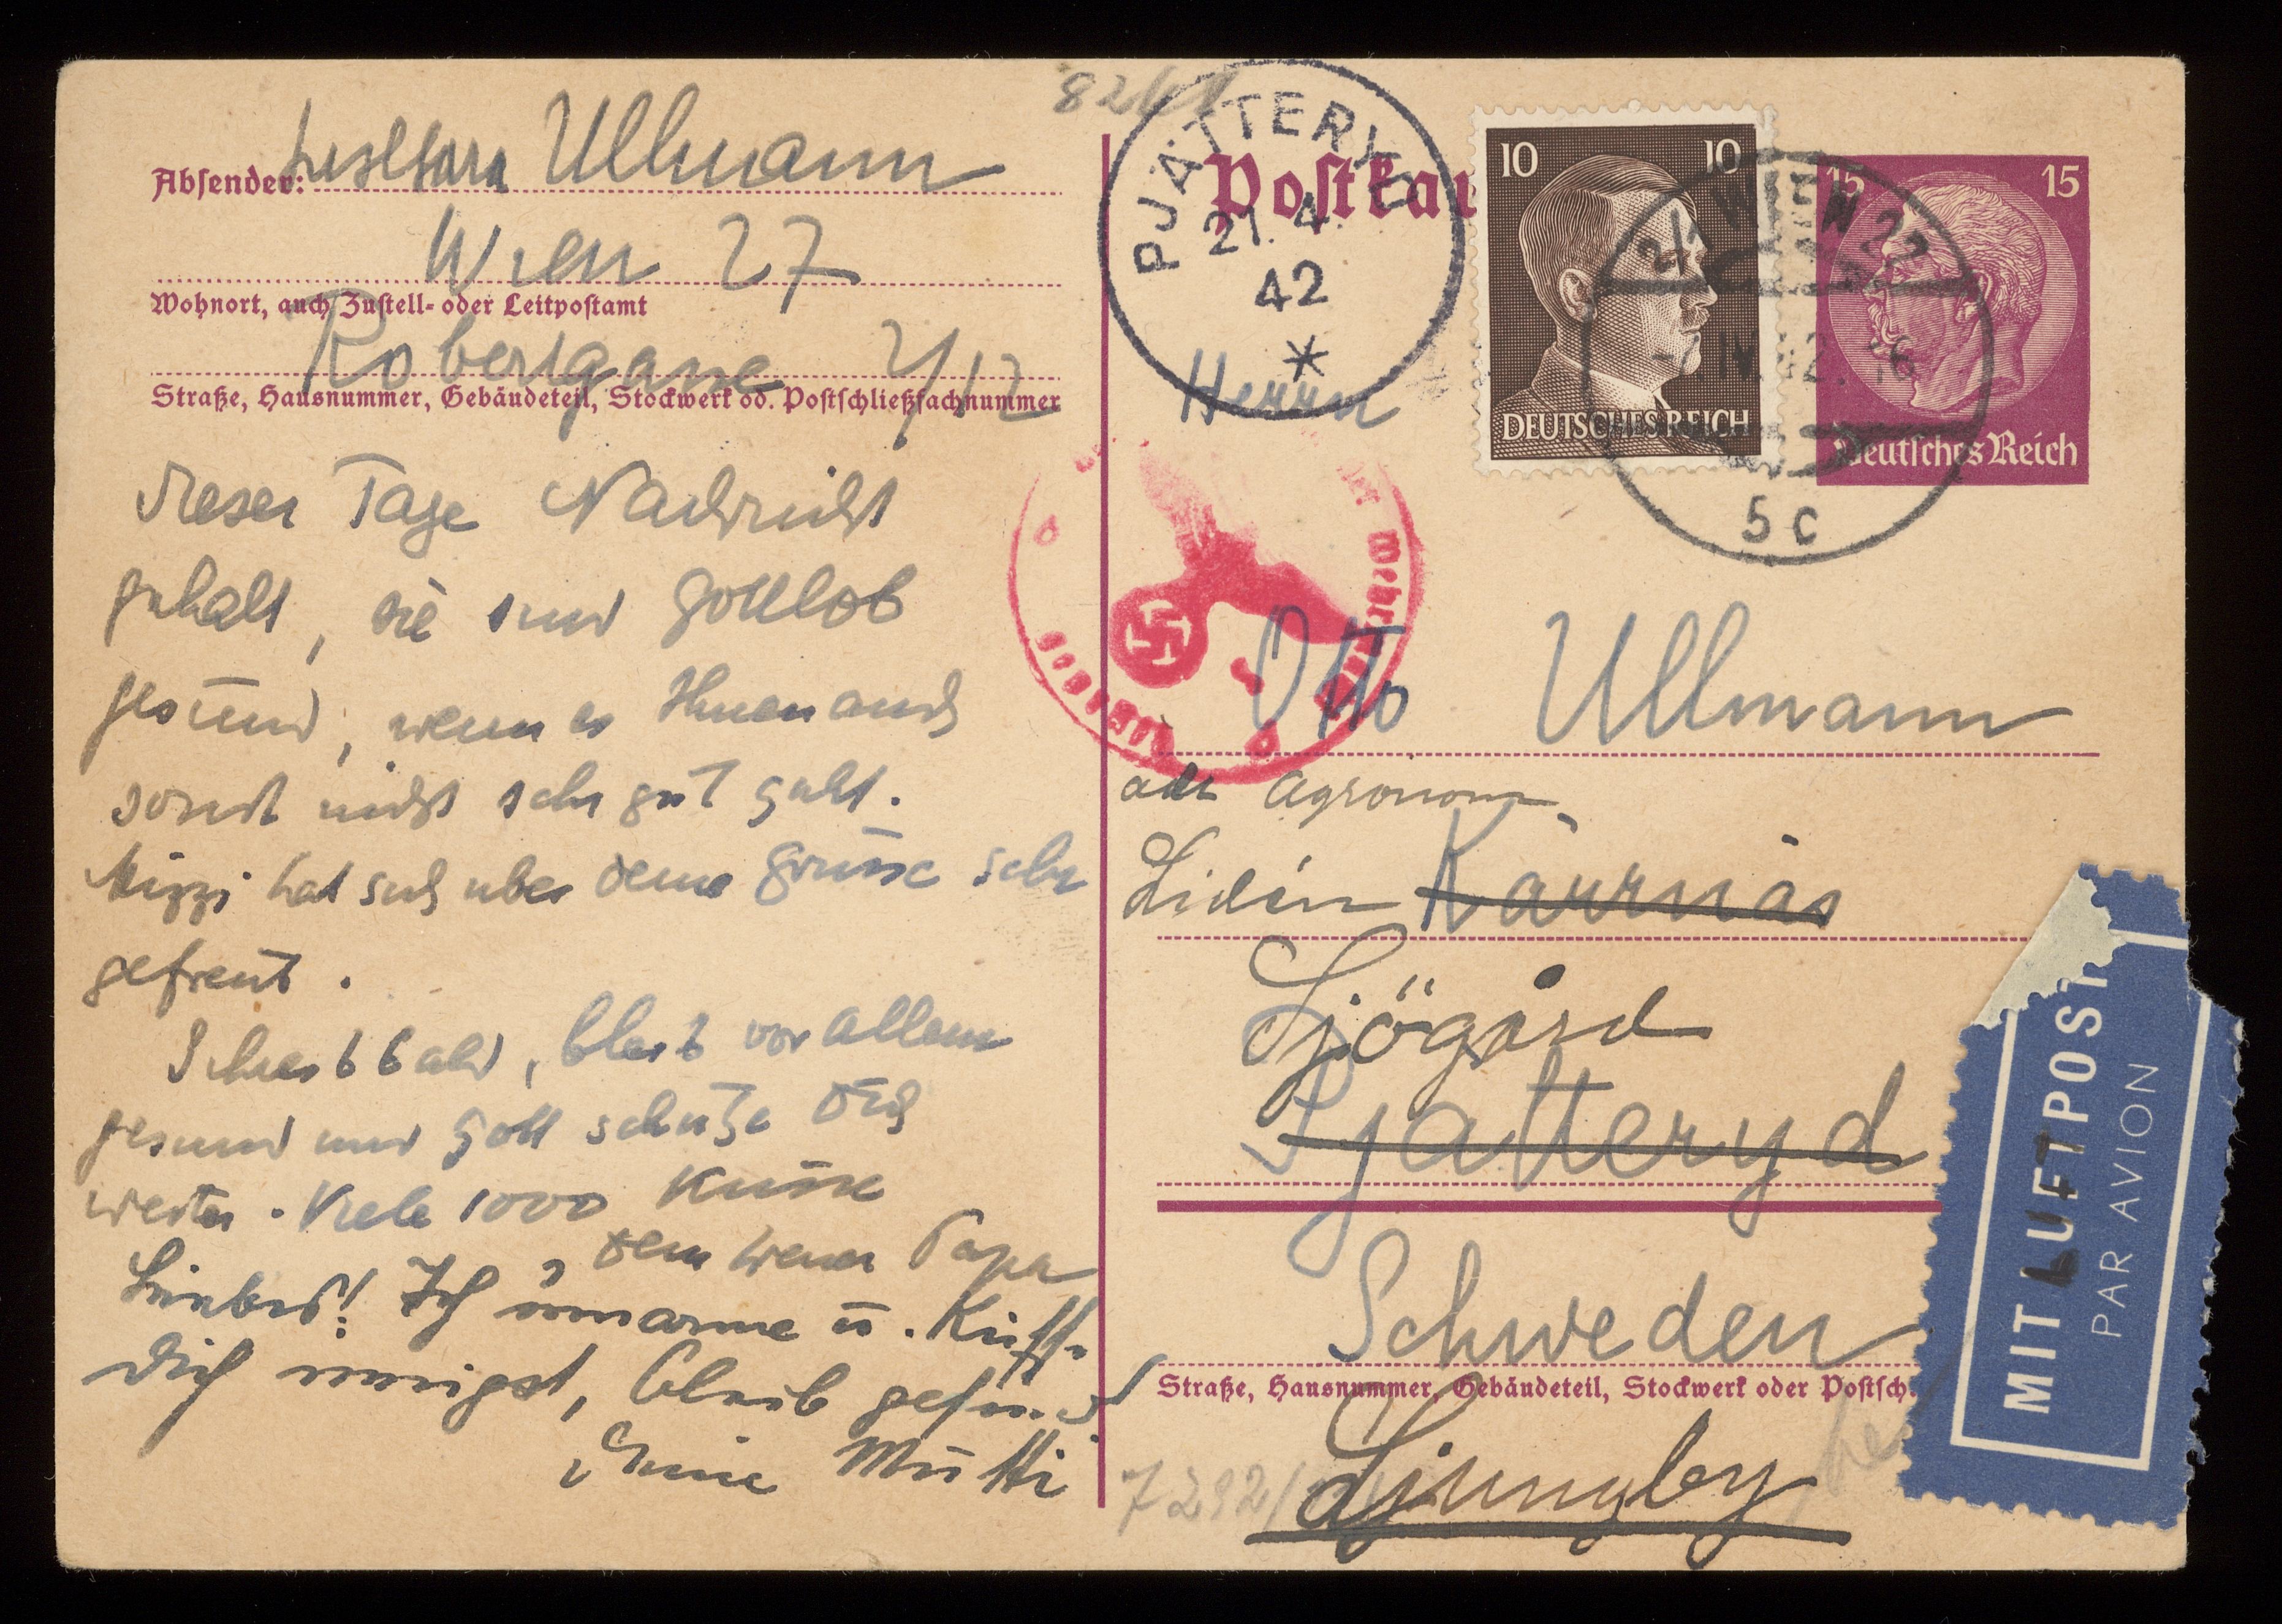 82
Absender: Lisl Sara Ullmann
Wien 27
Wohnort, auch Zustell- oder Leitpostamt
Robertgasse 2/12
Straße, Hausnummer, Gebäudeteil, Stockwerk od. Postschließfachnummer
dieser Tage Nachricht
gehabt, sie sind gottlob
gesund, wenn es Ihnen auch
sonst nicht sehr gut geht.
Mizzi hat sich über deine Grüsse sehr
gefreut.
Schreib bald, bleib vor allem
gesund und Gott schütze Dich
weiter. Viele 1000 Küsse
dein Papa
Liebes! Ich umarme u. Küsse
Dich innigst, bleib gesund
Deine Mutti
Postkar
PJÄTTERYD
21.4.
42
*
10 10
DEUTSCHES REICH
15 15
Deutsches Reich
WIEN 27
IV.42.
5c
Herrn
Otto Ullmann
adr Agronom
Lidén Kärrnäs
Sjögård
Pjätteryd
Schweden
Straße, Hausnummer, Gebäudeteil, Stockwerk oder Postsch
Ljungby
7292/
MIT LUFTPOST
PAR AVION